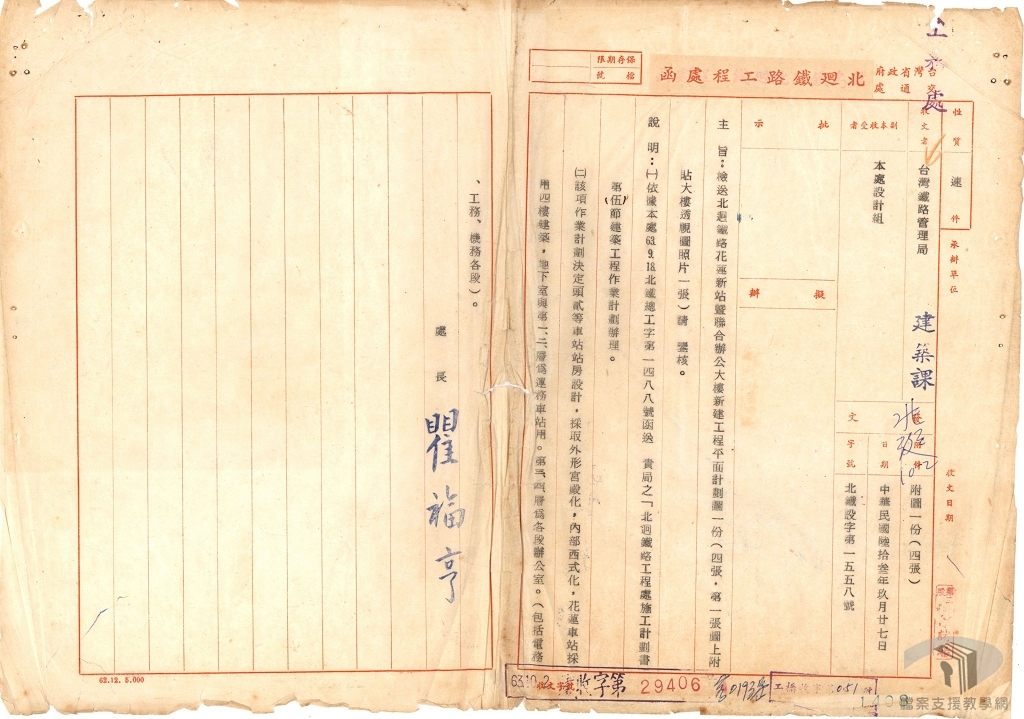 台灣省政府
交通處
北廻鐵路工程處函
保存期限
檔號
性質
速件
承辦單位
收文日期
收文者
台灣鐵路管理局
建築課
副本收受者
本處設計組
發文
附件
附圖一份(四張)
日期
中華民國陸拾叁年玖月廿七日
字號
北鐵設字第一五五八號
批示
擬辦
主旨:檢送北廻鐵路花蓮新站暨聯合辦公大樓新建工程平面計劃圖一份(四張,第一張圖上附
貼大樓透視圖照片一張)請 鑒核。
說明:㈠依據本處63.9.18.北鐵總工字第一四八八號函送 貴局之「北廻鐵路工程處施工計劃書
第(伍)節建築工程作業計劃辦理。
㈡該項作業計劃決定頭貳等車站站房設計,採取外形宮殿化,內部西式化,花蓮車站採
用四樓建築,地下室與第一、二、層為運務車站用。第三、四層為各段辦公室。(包括電務
、工務、機務各段)。
處長
瞿福亭
62.12. 5.000
63.10.2
收文字第
29406
檔案支援教學網